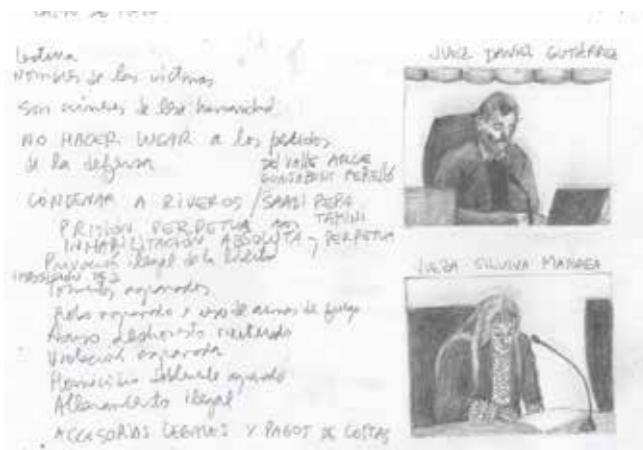 Lectura
nombres de las victimas
son crímenes de lesa humanidad
NO HACER LUGAR a los pedidos
de la defensa
DEL VALLE ARCE
CONDENAR A RIVEROS / SAADI PEPE
TAMINI
PRISION PERPETUA
INHABILITACION ABSOLUTA y PERPETUA
Privación ilegal de la libertad
IMPOSICION DE
Tormentos agravados
Robo agravado x uso de armas de fuego
Abuso deshonesto reiterado
Violación agravada
Homicidio doblemente agravado
Allanamiento ilegal
ACCESORIAS LEGALES Y PAGOS DE COSTAS
JUEZ DANIEL GUTIÉRREZ
JUEZA SILVINA MAYORGA